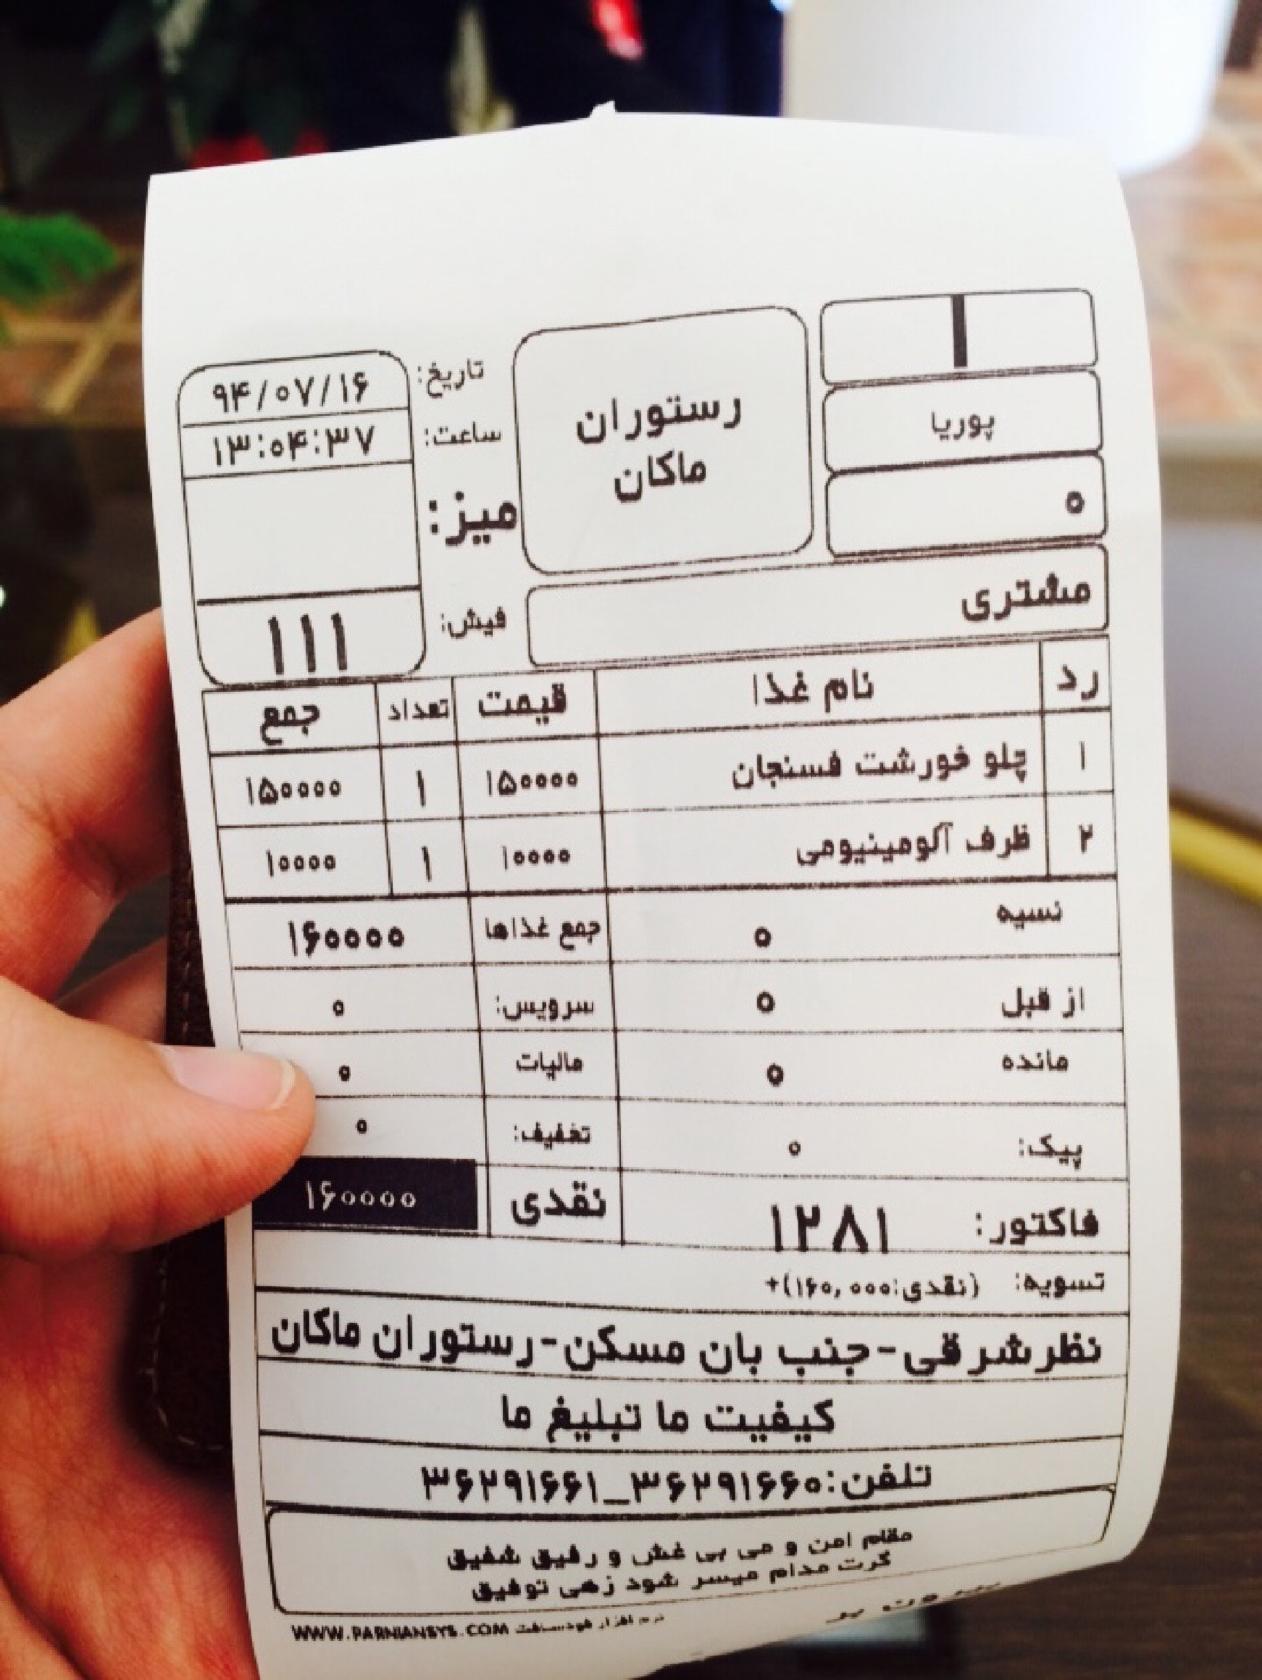 ا
پوریا
۰
رستوران
ماکان
تاریخ: ۹۴/۰۷/۱۶
ساعت: ۱۳:۰۴:۳۷
میز:
فیش: ۱۱۱
مشتری
رد نام غذا قیمت تعداد جمع
۱ چلو خورشت فسنجان ۱۵۰۰۰۰ ۱ ۱۵۰۰۰۰
۲ ظرف آلومینیومی ۱۰۰۰۰ ۱ ۱۰۰۰۰
نسیه ۰ جمع غذاها ۱۶۰۰۰۰
از قبل ۰ سرویس: ۰
مانده ۰ مالیات ۰
پیک: ۰ تخفیف: ۰
فاکتور: ۱۲۸۱ نقدی ۱۶۰۰۰۰
تسویه: (نقدی:۱۶۰,۰۰۰)+
نظر شرقی-جنب بان مسکن-رستوران ماکان
کیفیت ما تبلیغ ما
تلفن:۳۶۲۹۱۶۶۰_۳۶۲۹۱۶۶۱
مقام امن و می بی غش و رفیق شفیق
گرت مدام میسر شود زهی توفیق
بیرون بر
نرم افزار خودساخت WWW.PARNIANSYS.COM